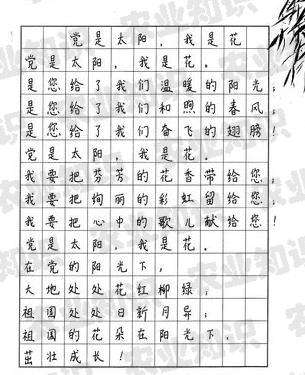 党是太阳，我是花
党是太阳，我是花。
是您给了我们温暖的阳光；
是您给了我们和煦的春风；
是您给了我们奋飞的翅膀！
党是太阳，我是花。
我要把芬芳的花香带给您；
我要把绚丽的彩虹留给您；
我要把心中的歌儿献给您！
党是太阳，我是花。
在党的阳光下，
大地处处花红柳绿；
祖国处处日新月异；
祖国的花朵在阳光下，
茁壮成长！
农业知识